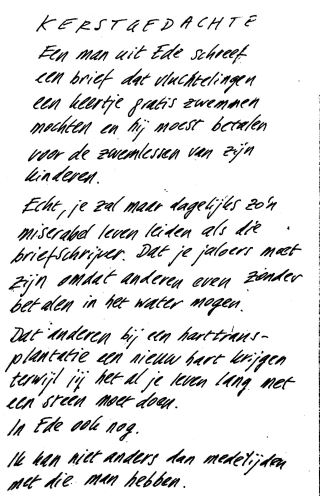 KERSTGEDACHTE
Een man uit Ede schreef
een brief dat vluchtelingen
een keertje gratis zwemmen
mochten en hij moest betalen
voor de zwemlessen van zijn
kinderen.
Echt, je zal maar dagelijks zo'n
miserabel leven leiden als die
briefschrijver. Dat je jaloers moet
zijn omdat anderen even zonder
betalen in het water mogen.
Dat anderen bij een harttrans-
plantatie een nieuw hart krijgen
terwijl jij het al je leven lang met
een steen moet doen.
In Ede ook nog.
Ik kan niet anders dan medelijden
met die man hebben.